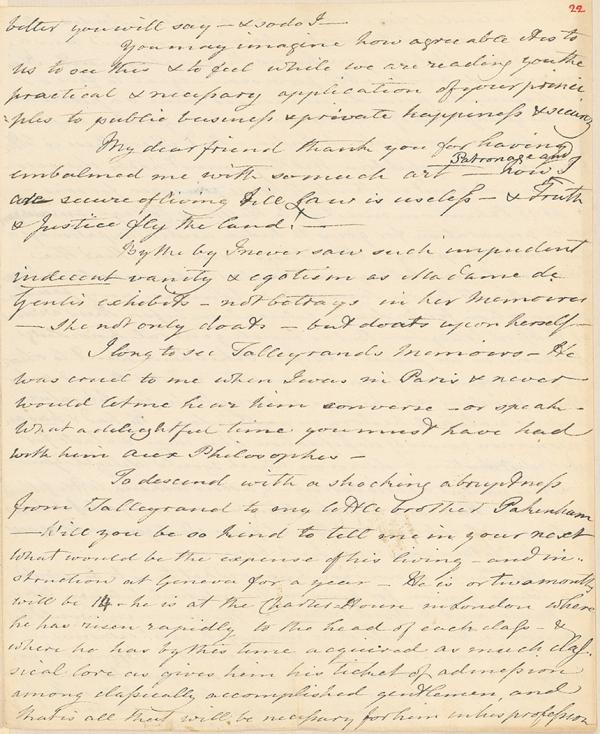 22
better you will say — & so do I —
You may imagine how agreeable it is to
us to see this & to feel while we are reading you the
practical & necessary application of your princi
-ples to public business & private happiness & security
My dear friend thank you for having
Patronage and
embalmed me with so much art — now I
are secure of living till Law is useless — & Truth
& Justice fly the land. —
By the by I never saw such impudent
indecent vanity & egotism as Madame de
Genlis exhibits — not betrays in her Memoires
— She not only doats — but doats upon herself —
I long to see Talleyrand's Memoirs — He
was cruel to me when I was in Paris & never
would let me hear him converse — or speak —
What a delightful time you must have had
with him aux Philosophes —
To descend with a shocking abruptness
from Talleyrand to my little brother Pakenham
— Will you be so kind to tell me in your next
what would be the expense of his living — and in-
struction at Geneva for a year — He is or two months
will be 14 — he is at the Charter House in London where
he has risen rapidly to the head of each class — &
where he has by this time acquired as much clas-
sical lore as gives him his ticket of admission
among classically accomplished gentlemen, and
that is all that will be necessary for him in his profession